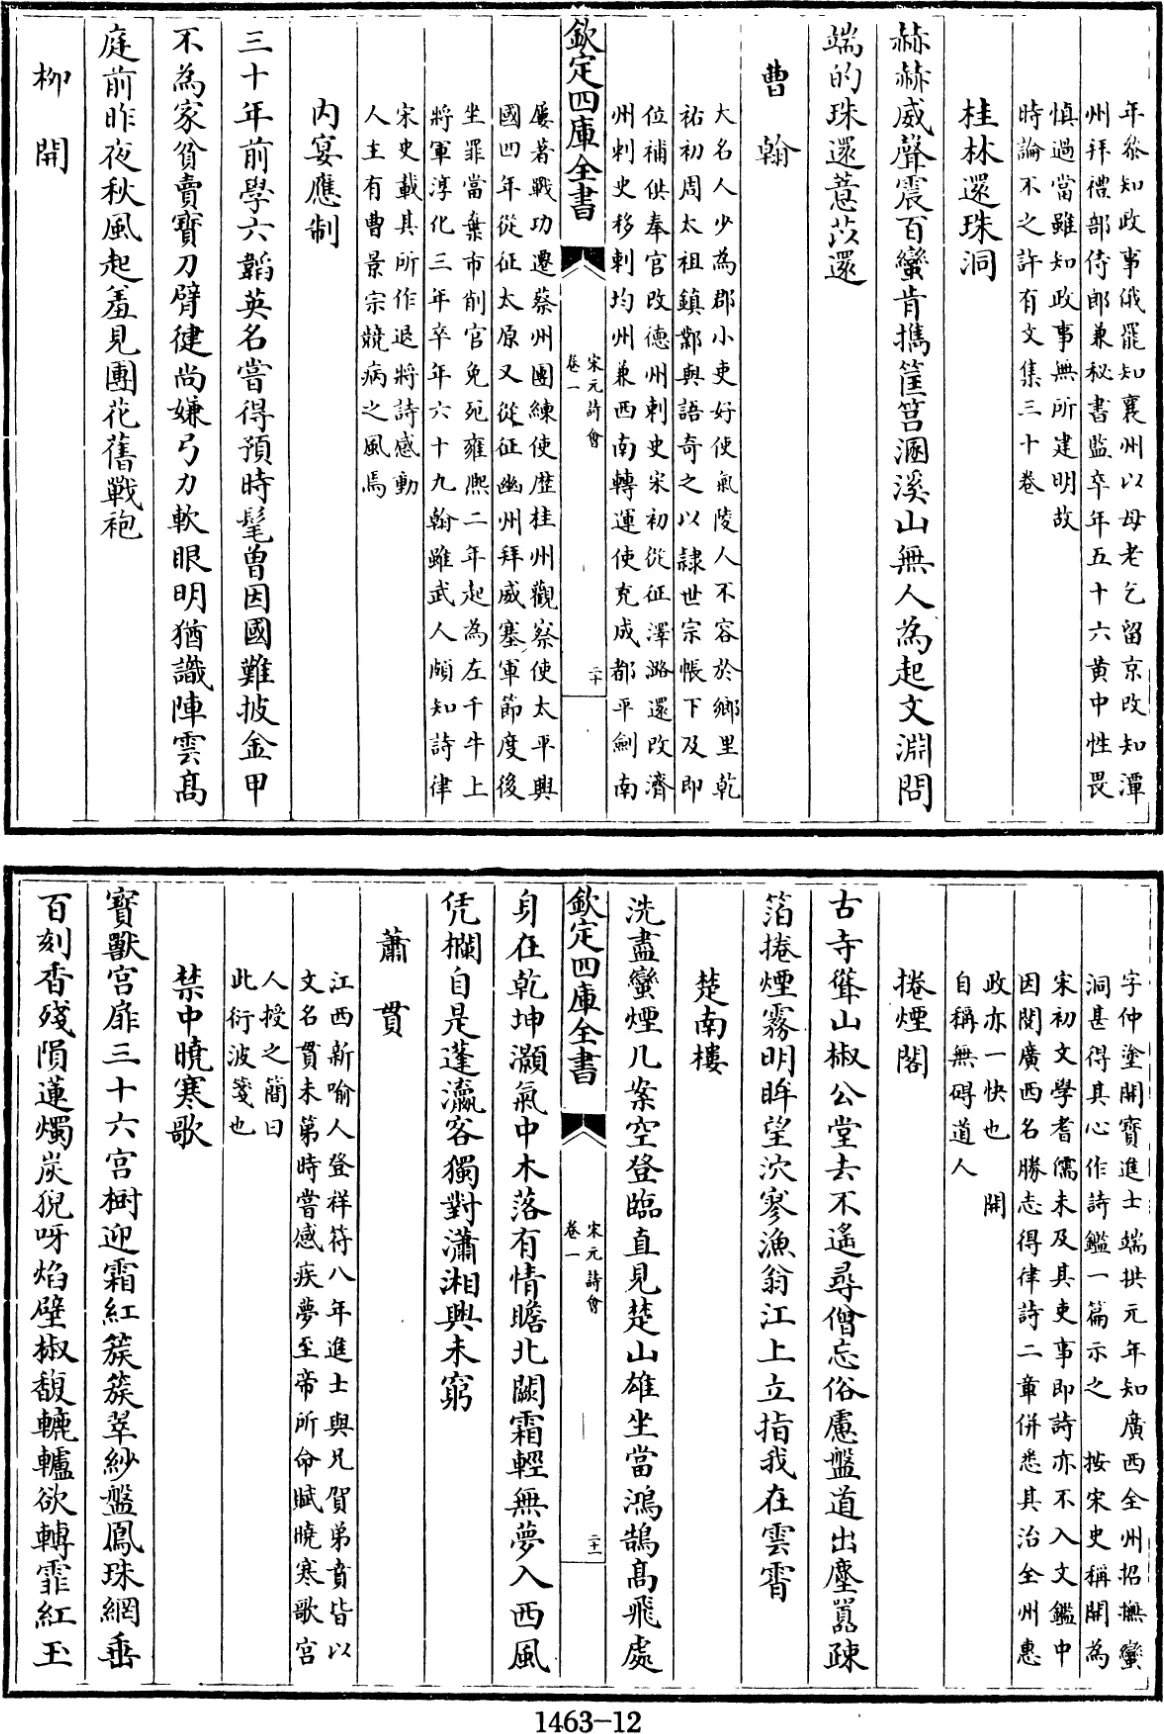 年叅知政事俄罷知襄州以母老乞留京改知潭
州拜禮部侍郎兼秘書監卒年五十六黄中性畏
慎過當雖知政事無所建明故
時論不之許有文集三十卷
桂林還珠洞
赫赫威聲震百蠻肯攜筐筥溷溪山無人為起文淵問
端的珠還薏苡還
曹翰
大名人少為郡小吏好使氣陵人不容於鄉里乾
祐初周太祖鎮鄴與語奇之以隸世宗帳下及即
位補供奉官改德州刺史宋初從征澤潞還改濟
州刺史移刺均州兼西南轉運使充成都平劍南
欽定四庫全書
宋元詩會
卷一
二十
屢著戰功遷蔡州團練使歷桂州觀察使太平興
國四年從征太原又從征幽州拜威塞軍節度後
坐罪當棄市削官免死雍熙二年起為左千牛上
將軍淳化三年卒年六十九翰雖武人頗知詩律
宋史載其所作退將詩感動
人主有曹景宗競病之風焉
内宴應制
三十年前學六韜英名嘗得預時髦曾因國難披金甲
不為家貧賣寳刀臂健尚嫌弓力軟眼明猶識陣雲髙
庭前昨夜秋風起羞見團花舊戰袍
柳開
字仲塗開寳進士端拱元年知廣西全州招撫蠻
洞甚得其心作詩鑑一篇示之 按宋史稱開為
宋初文學耆儒未及其吏事即詩亦不入文鑑中
因閲廣西名勝志得律詩二章併悉其治全州惠
政亦一快也 開
自稱無碍道人
捲煙閣
古寺聳山椒公堂去不遙尋僧忘俗慮盤道出塵囂疎
箔捲煙霧明眸望泬寥漁翁江上立指我在雲霄
楚南樓
洗盡蠻煙几案空登臨直見楚山雄坐當鴻鵠髙飛處
欽定四庫全書
宋元詩會
卷一
二十一
身在乾坤灝氣中木落有情瞻北闕霜輕無夢入西風
凭欄自是蓬瀛客獨對瀟湘興未窮
蕭貫
江西新喻人登祥符八年進士與兄賀弟賁皆以
文名貫未第時嘗感疾夢至帝所命賦曉寒歌宫
人授之簡曰
此衍波箋也
禁中曉寒歌
寳獸宫扉三十六宫樹迎霜紅簇簇翠紗盤鳳珠網垂
百刻香殘隕蓮燭炭猊呀焰壁椒馥轆轤欲轉霏紅玉
1463-12